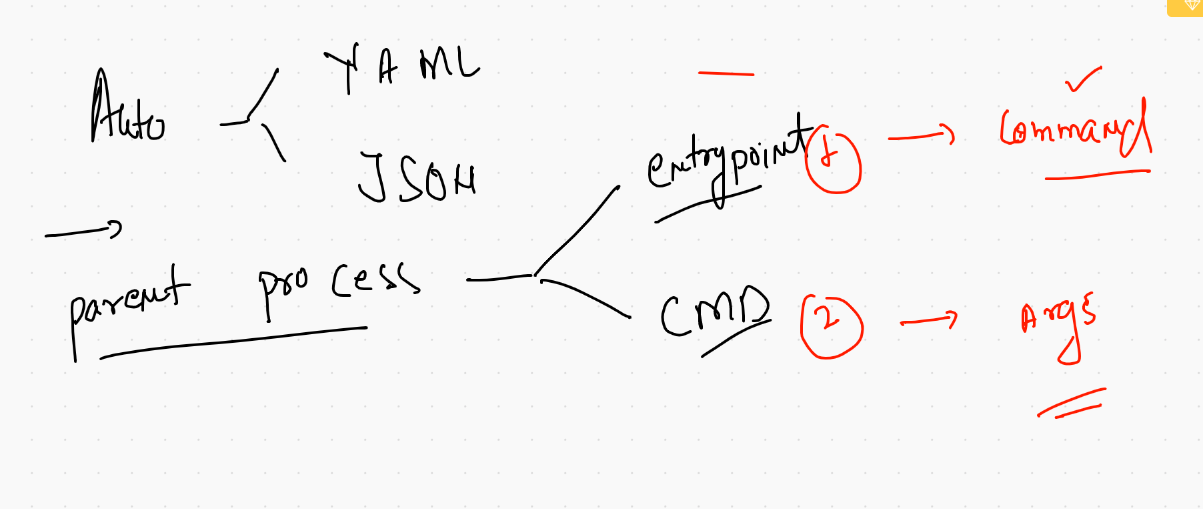 Auto
YAML
JSON
parent process
entrypoint 1 → Command
CMD 2 → Args